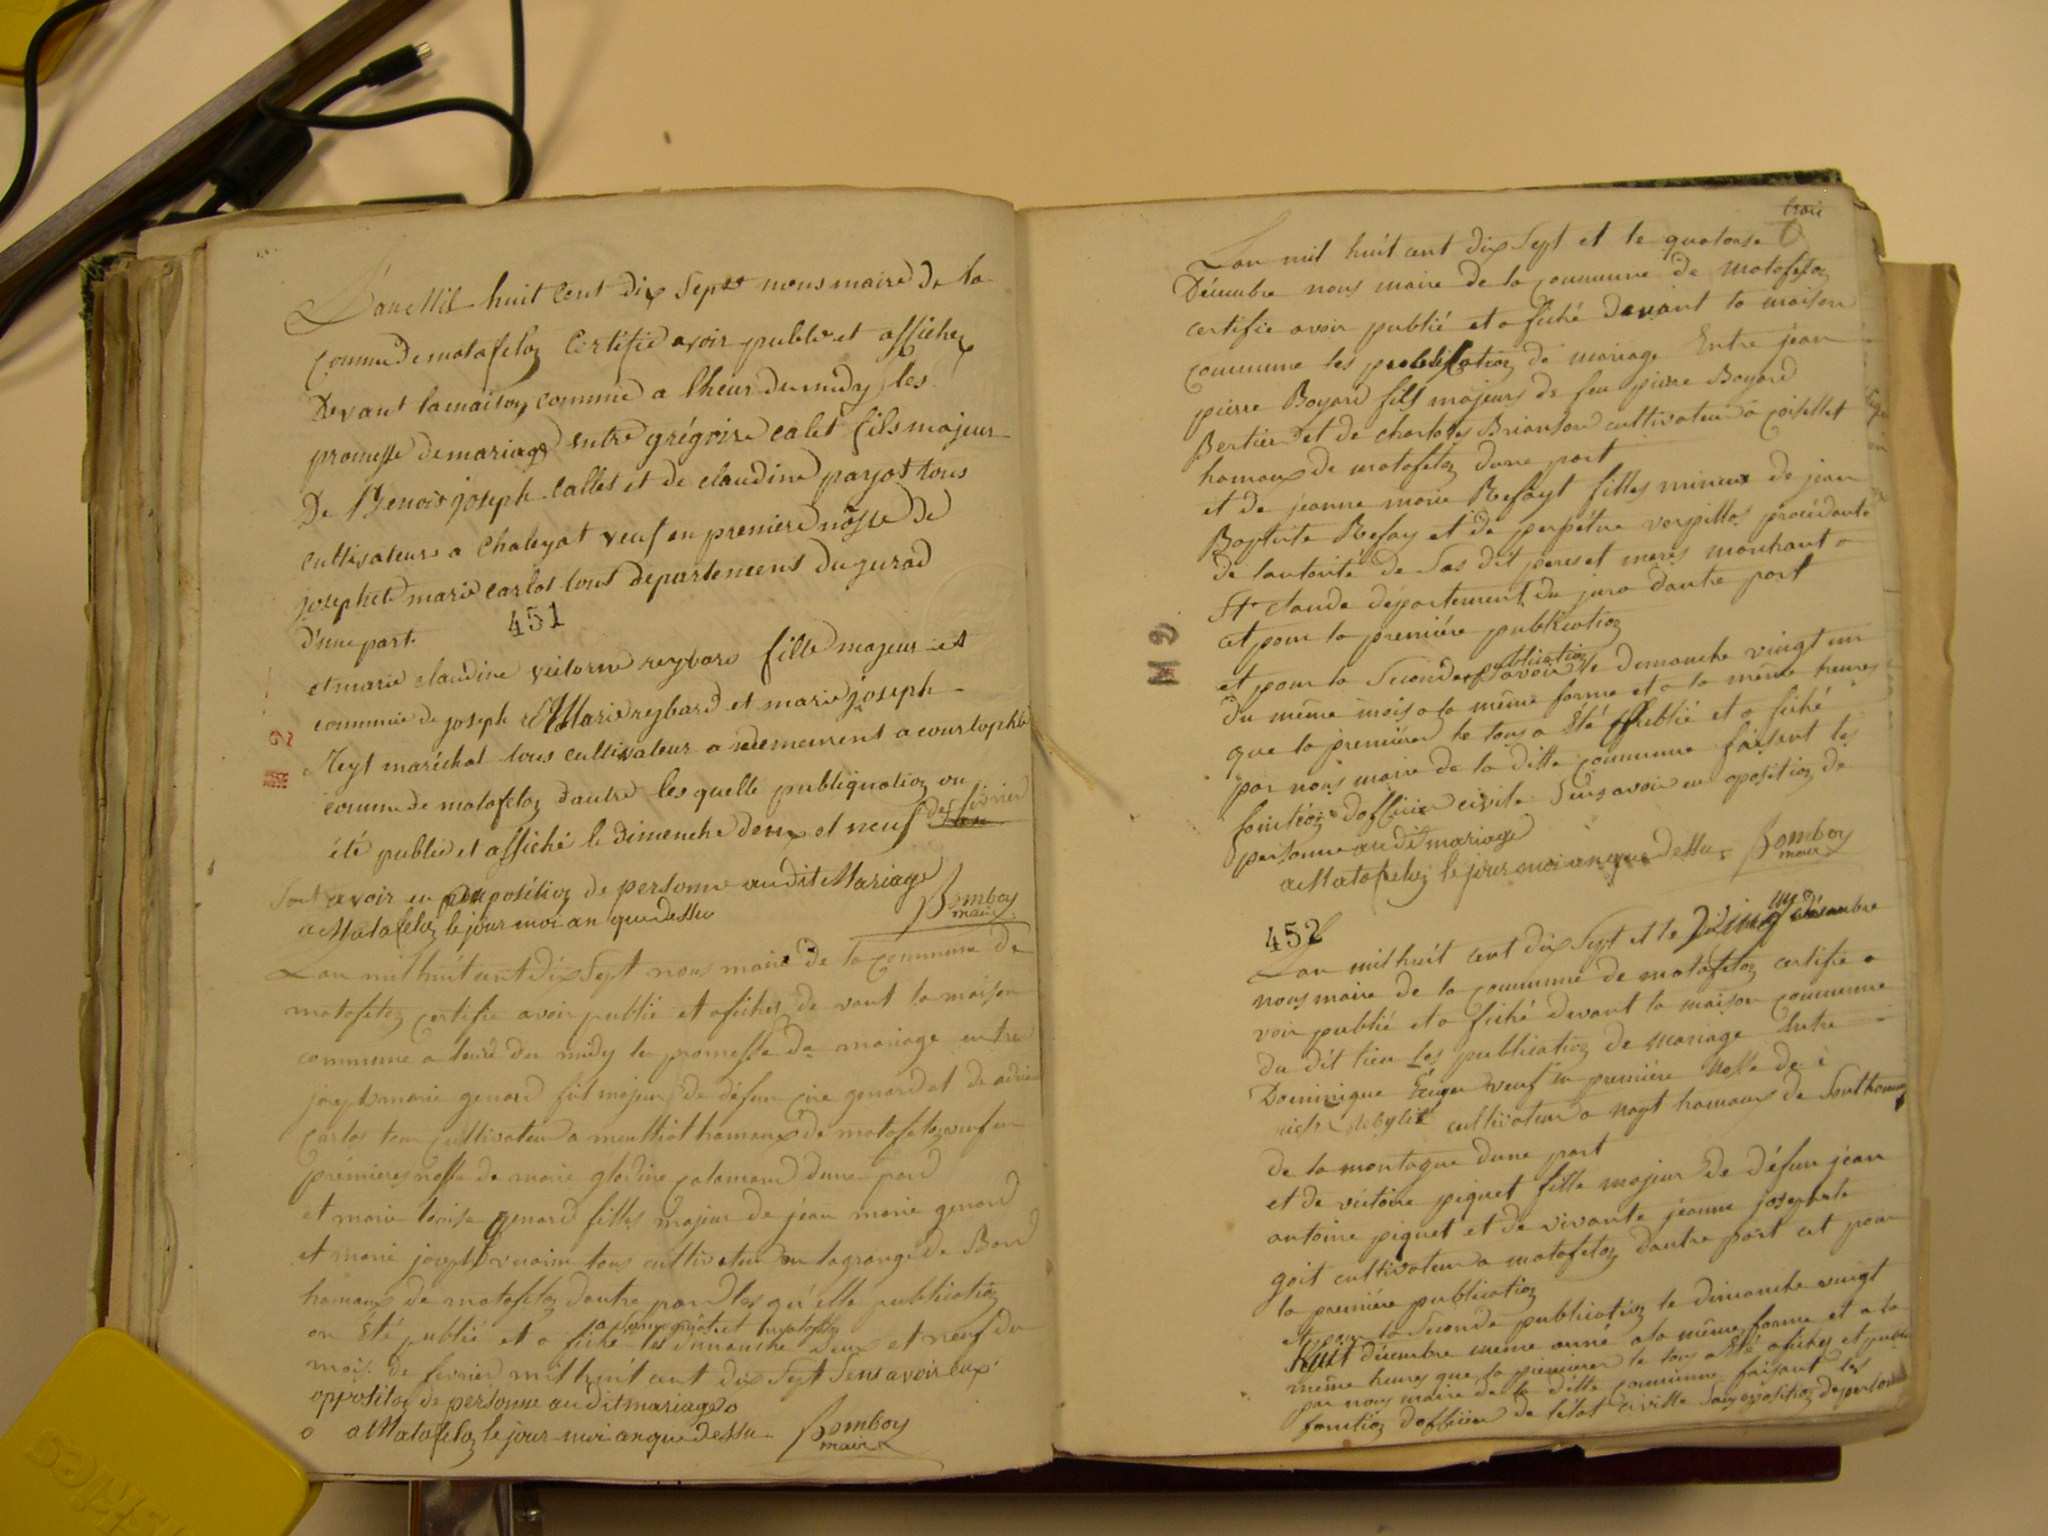 L'an Mil huit Cent dix Sept nous maire de la
Commu de matafeloz Certifie avoir publie et affichez
Devant la maison commune a lheur du midy les
promesse de mariage entre grégoire calet fils majeur
De Benois joseph Callet et de claudine payot tous
cultivateurs a Chaleyat veuf en premiere nosse de
josephete marie carlot tous departement du jurad
d'une part
451
et marie claudine victorine reybard fille majeur et
commune de joseph Marie reybard et marie joseph
Reyt maréchal tous cultivateur a demeurent a courtophle
commu de matafeloz dautre les quelle publiquatioz on
été publie et affiché le dimenche deux et neuf de fevrier
Sent avoir eu opositioz de personne au dit Mariage
a Matafeloz le jour moi an que dessu
Bomboy
maire
M 2
Lan mil huit cent dix Sept nous maire de la commune de
matafeloz certifie avoir publié et afiches de vant la maison
commune a leure du midy le promesse de mariage entre
joseph marie genard fils majeur de défun cire genard et de
carlos tous cultivateur a menthiat hamaux de matafeloz veuf en
prémieres nosse de marie glodine calamard dune pard
et marie louise genard filles majeur de jéan marie genard
et marie joseph vuarin tous cultivateur en la grange de Bond
hamaux de matafeloz dautre pard les quelle publicatioz
on été publié et a fiché les dimanche deux et neuf du
a et matafeloz
mois de fevrier mil huit cent dix Sept Sens avoir eux
oppositioz de personne au dit mariage
a Matafeloz le jour moi an que dessu
Bomboy
maire
trois
Lan mil huit cent dix Sept et le quatorse
Décembre nous maire de la commune de matafeloz
certifie avoir publié et a fiché devant la maison
commune les publicatioz de mariage Entre jean
pierre Boyard fils majeurs de feu pierre Boyard
Bertier et de charlotes Brianson cultivateur a coisellet
hamaux de matafeloz dune part
et de jeanne marie Refayt filles mineur de jean
Baptiste Refay et de perpétue verpillas procédante
de lautorite de Sas dit peres et meres marchant a
St claude département du jura dautre part
cet pour la premiére publicatioz
et pour la Seconde publicatioz Savoir le dimanche vingt un
du même mois a la même forme et a la même heures
que la premiérer le tous a été Publié et a fiché
par nous maire de la ditte commune faisant les
fonctioz dofficier civile Sens avoir eu opositioz de
personne au dit mariage
a Matafeloz le jour moi an que dessu
Bomboy
maire
M 2
452
Lan mil huit cent dix Sept et le vingt un décembre
nous maire de la commune de matafeloz certifie a
voir publié et a fiché devant la maison commune
du dit lieu Les publicatioz de mariage Entre
Dominique veuf en premiére nosse de
cultivateur a nayt hamaux de Sonthonax
de la montagne dune part
et de victoire piquet fille majeur de défun jean
antoine piquet et de vivante jeanne josephete
goit cultivateur a matafeloz dautre part cet pour
la premiére publicatioz
et pour la Seconde publicatioz le dimanche vingt
Huit décembre meme anné a la même forme et a la
même heures que la premierer le tous a été afichez et publié
par nous maire de la ditte commune faisant les
fonctioz dofficier de létat civille Sans opositioz de personne